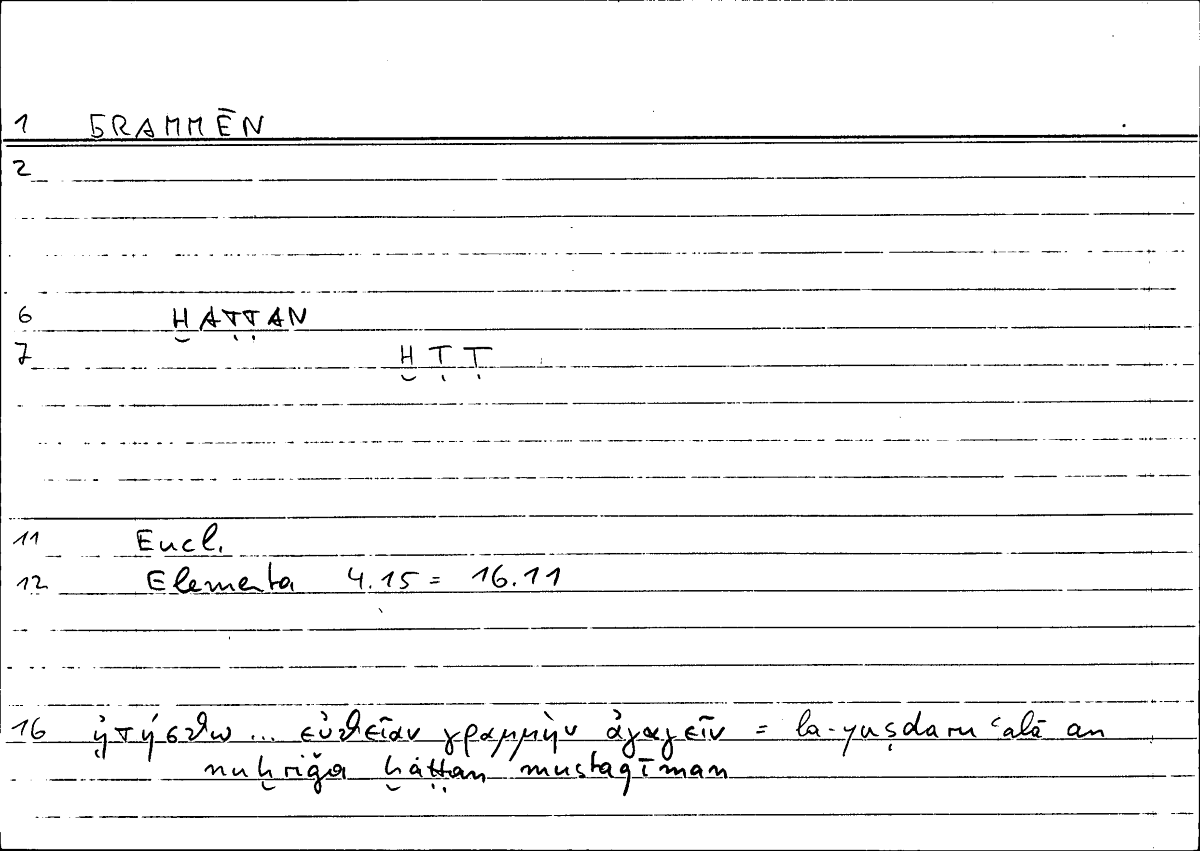 1 GRAMMĒN
2
6 ḪAṬṬAN
7 ḪṬṬ
11 Eucl.
12 Elementa 4.15 = 16.11
16 ᾐτήσθω ... εὐθεῖαν γραμμὴν ἀγαγεῖν = la-yuṣdaru ʿalā an
nuḫriǧa ḫaṭṭan mustaqīman